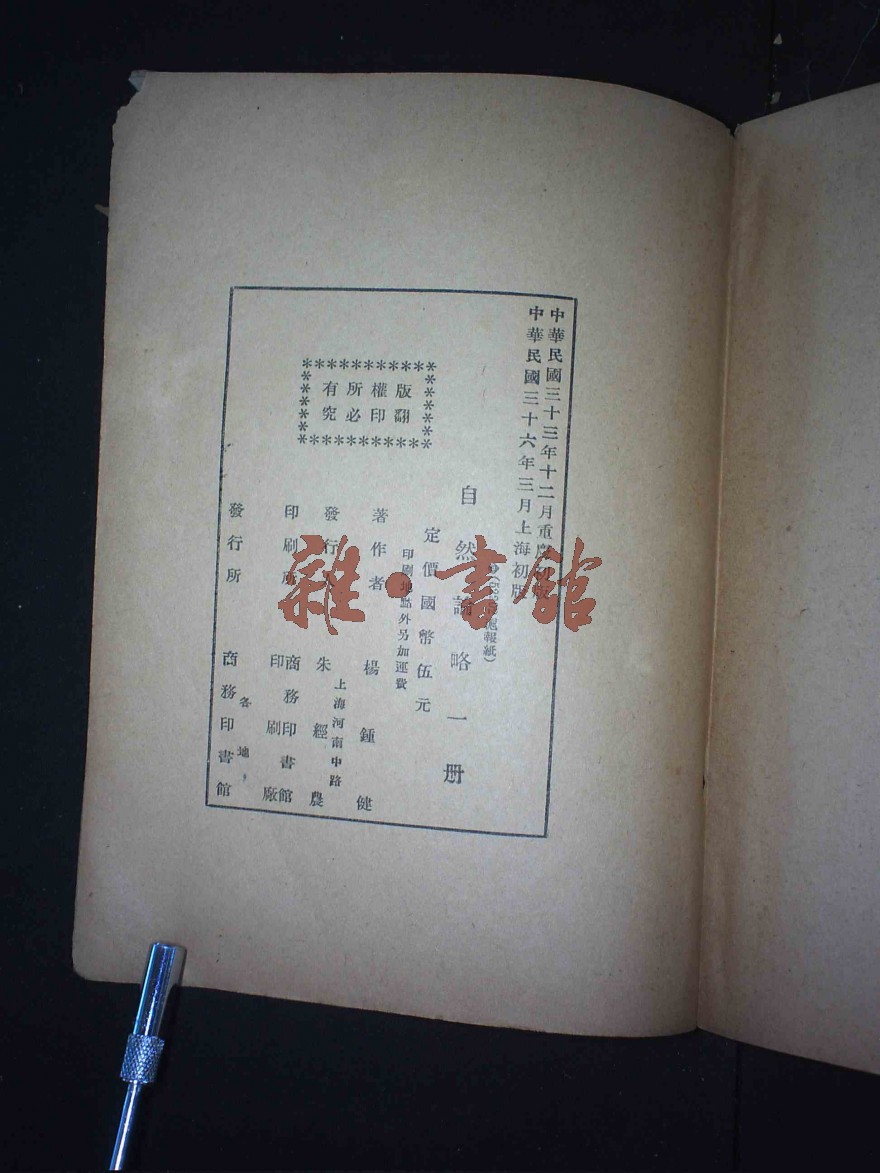 中華民國三十三年十二月重慶初版
中華民國三十六年三月上海初版
報紙)
自然論略一册
定價國幣伍元
印刷地點外另加運費
版權所有
翻印必究
著作者 楊鍾健
發行人 朱經農
上海河南中路
印刷所 商務印書館
印刷廠
發行所 商務印書館
各地
雜·書館